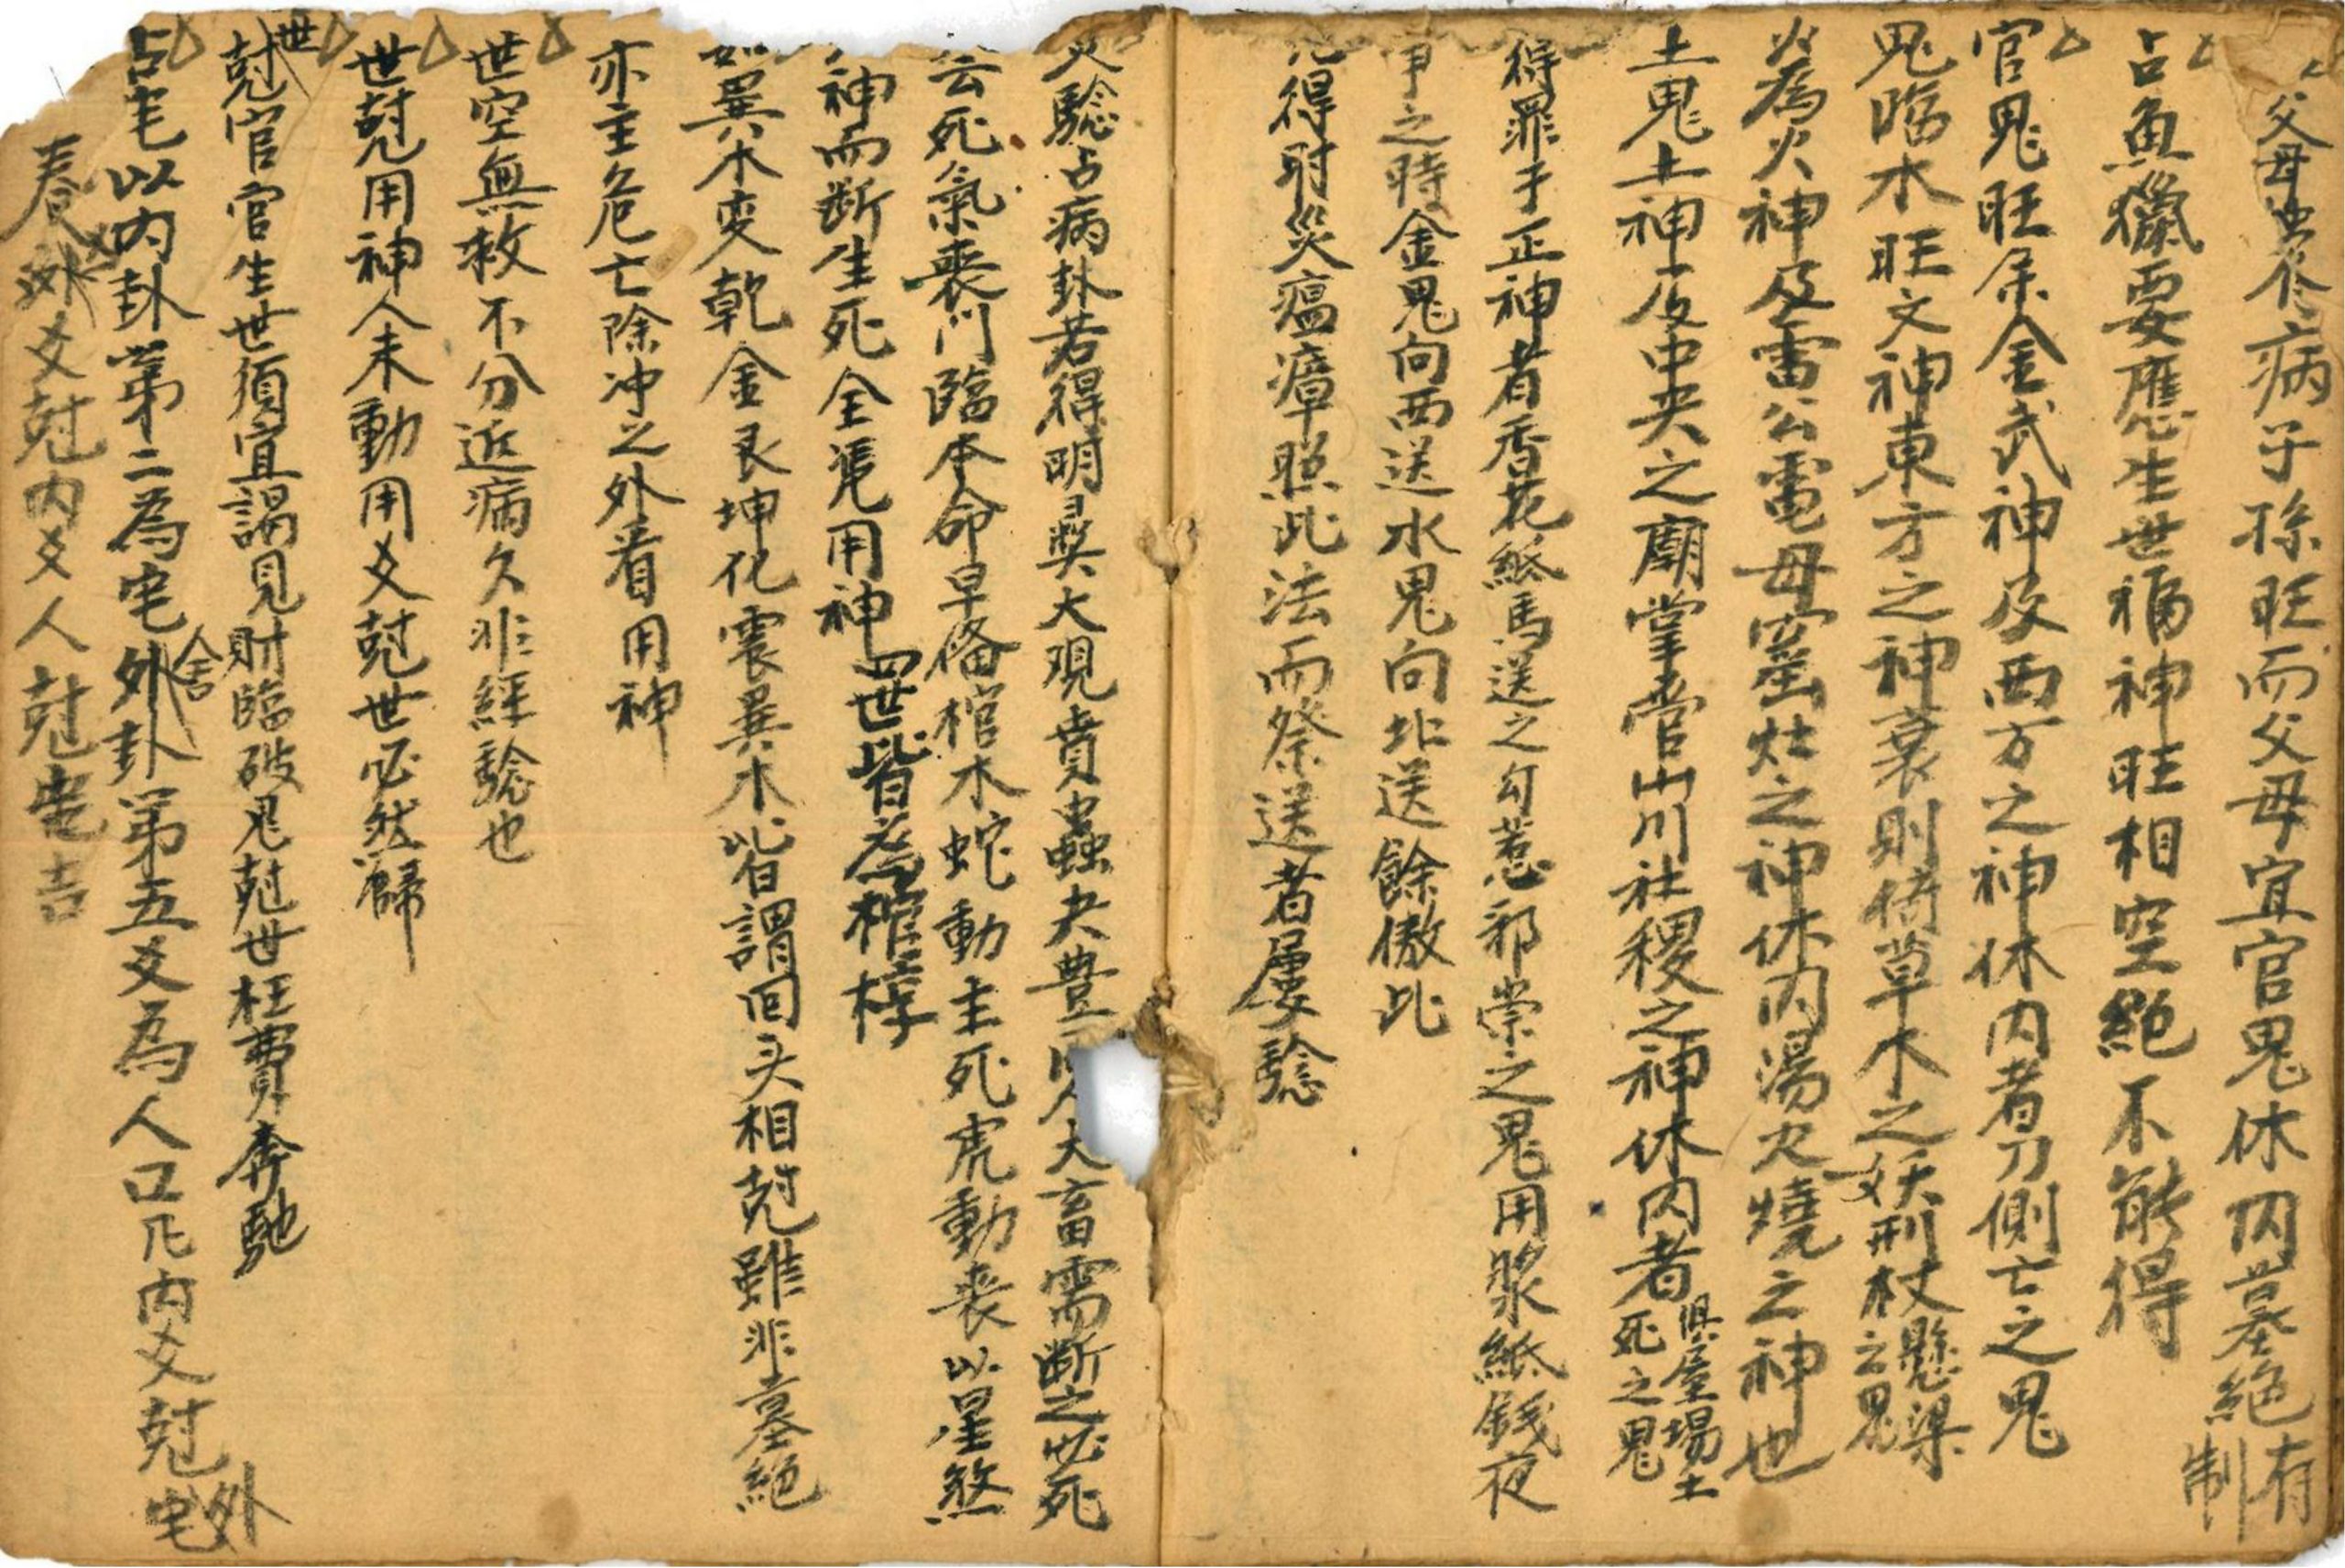 父母 病子孫旺而父母宜官鬼休囚墓絕有制
占魚獵要應生世福神旺相空絕不能得
官鬼旺象金武神及西方之神休囚者刀側亡之鬼
鬼臨水旺文神東方之神衰則倚草木之妖刑杖懸梁之鬼
火為火神及雷公電母窑灶之神休囚湯火燒之神也
土鬼土神及中央之廟掌管山川社稷之神休囚者俱屋場土死之鬼
得罪于正神者香花紙馬送之勾惹邪祟之鬼用漿紙錢夜
甲之時金鬼向西送水鬼向北送餘倣此
得時災瘟瘴照此法而祭送者屢驗
又驗占病卦若得明夷大观賁蠱夬豊 大畜需断之必死
云死氣丧门臨本命早俻棺木蛇動主死虎動丧以星煞
神而断生死全凴用神四世皆為棺槨
如巽木変乾金艮坤化震巽木皆謂回头相尅雖非墓絕
亦主危亡除冲之外看用神
世空無救不分近病久非經驗也
世尅用神人未動用爻尅世必然歸
世尅官官生世須宜謁見財臨破鬼尅世枉費奔馳
占宅以内卦第二為宅舍外卦第五爻為人口凡内爻尅外宅
春外爻尅内爻人尅宅吉